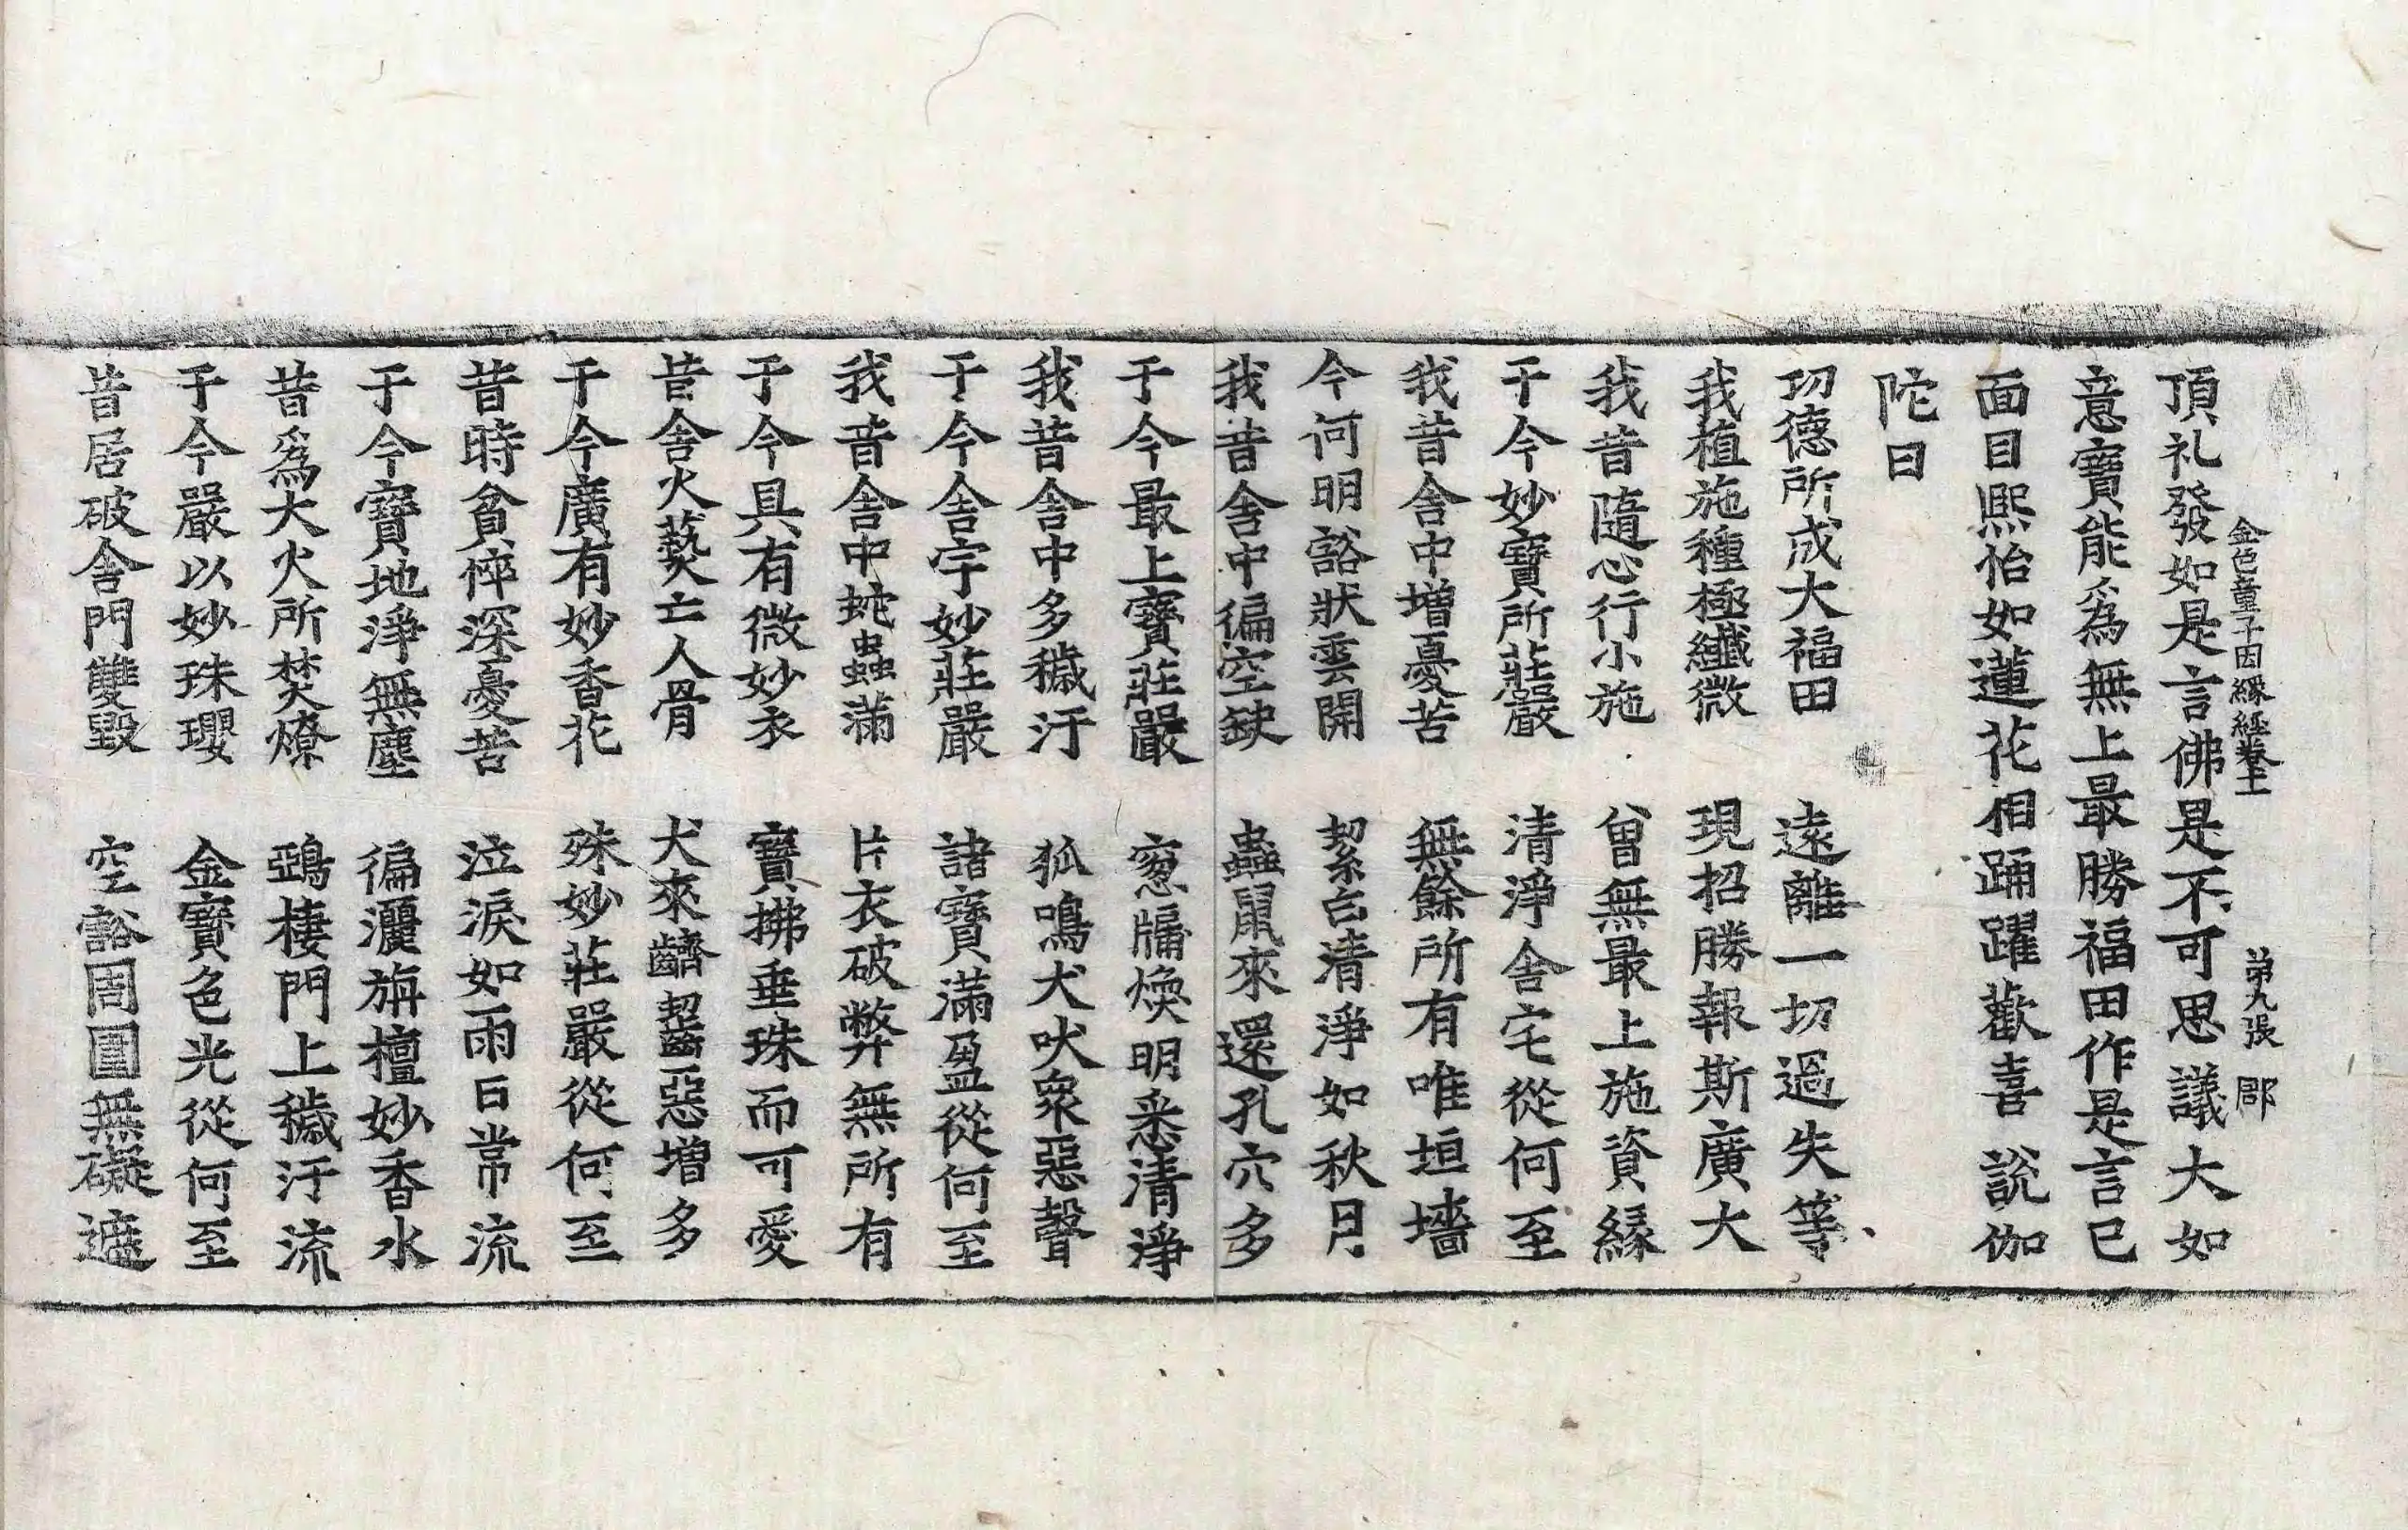 金色童子因緣經卷十二 第九張 郿
頂礼發如是言佛是不可思議大如
意寶能為無上最勝福田作是言已
面目熙怡如蓮花相踊躍歡喜說伽
陀曰
功德所成大福田 遠離一切過失等
我植施種極纖微 現招勝報斯廣大
我昔隨心行小施 曾無最上施資緣
于今妙寶所莊嚴 清淨舍宅從何至
我昔舍中增憂苦 無餘所有唯垣墻
今何明豁狀雲開 絜白清淨如秋月
我昔舍中徧空缺 蟲鼠來還孔穴多
于今最上寶莊嚴 窓牖煥明悉清淨
我昔舍中多穢汙 狐鳴犬吠衆惡聲
于今舍宇妙莊嚴 諸寶滿盈從何至
我昔舍中蛇蟲滿 片衣破弊無所有
于今具有微妙衣 寶拂垂珠而可愛
昔舍火爇亡人骨 犬來齩齧惡增多
于今廣有妙香花 殊妙莊嚴從何至
昔時貧悴深憂苦 泣淚如雨日常流
于今寶地淨無塵 徧灑旃檀妙香水
昔為大火所焚燎 鵶棲門上穢汙流
于今嚴以妙珠瓔 金寶色光從何至
昔居破舍門雙毀 空豁周圓無礙遮